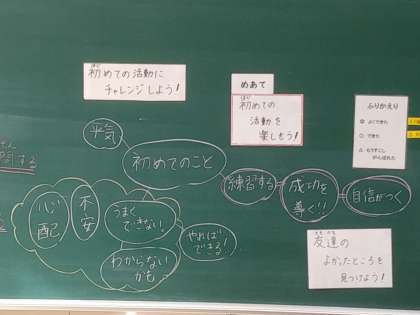 初めての活動に
チャレンジしよう！
めあて
初めての
活動を
楽しもう！
ふりかえり
◎ よくできた
○ できた
△ もうすこし
がんばれた
平気
初めてのこと
練習する
成功を
導く!!
自信がつく
心配
不安
うまく
できない！
やれば
できる！
わからない
かも
友達の
よかったところを
見つけよう！
する